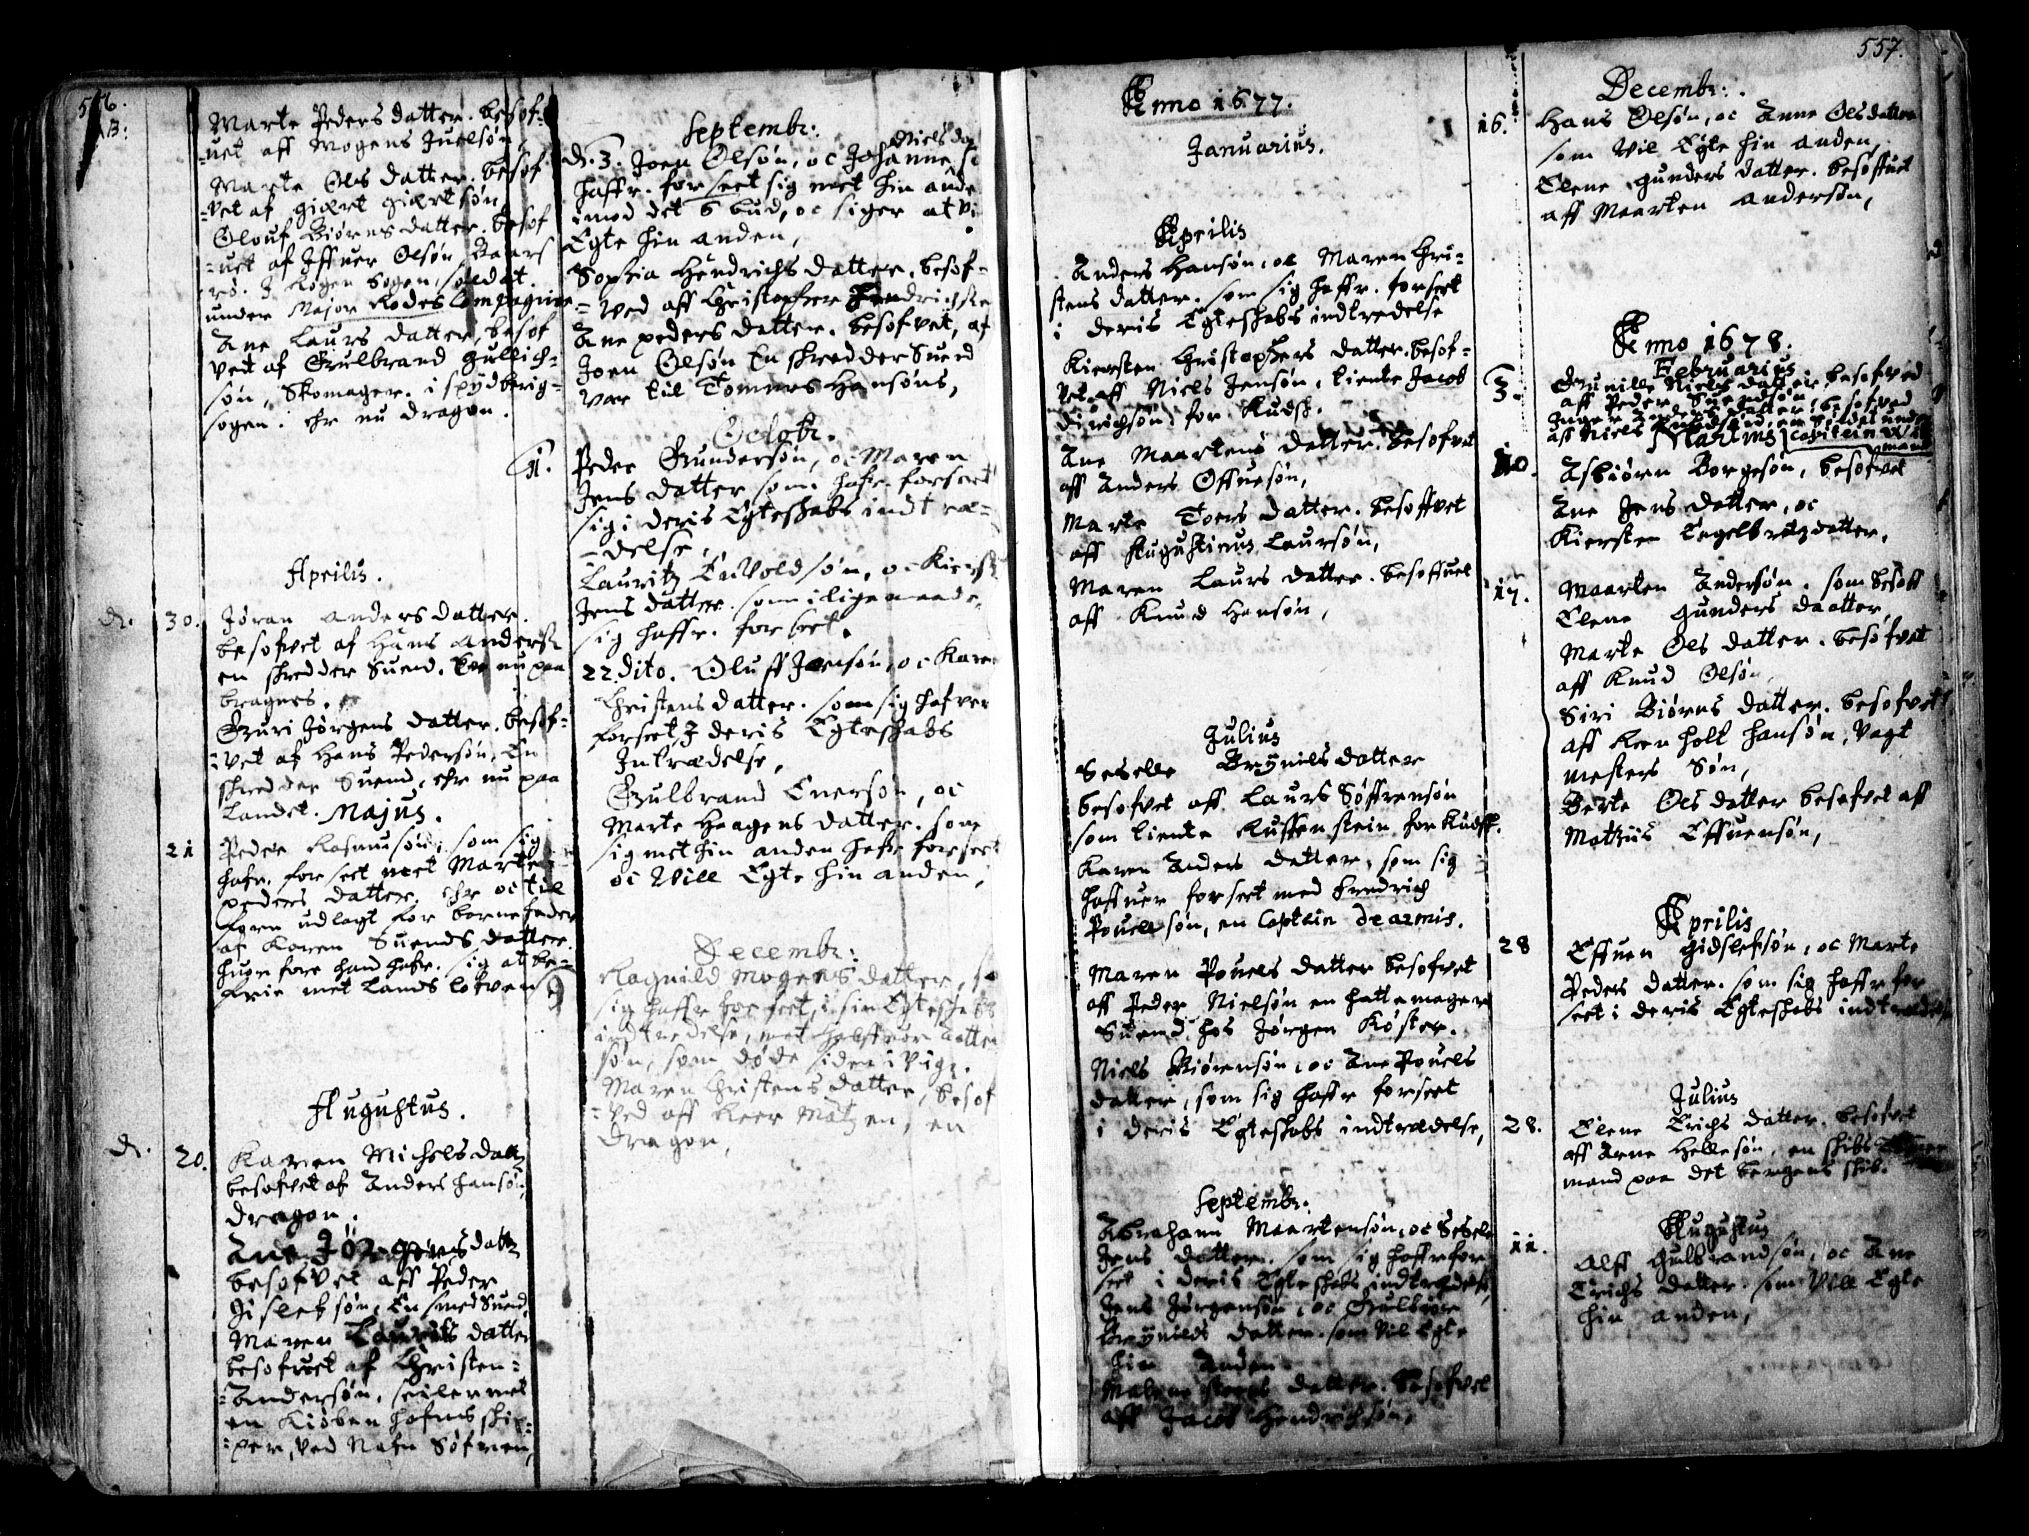 Marte Peders datter. besof-
-uet aff Mogens Juelsøn,
Marte Ols datter. besof
-vet af giert giertsøn,
Olouf Biørns datter. besof
-uet af Iffuer Olsøn
J Rogen sogen, soldat.
under Major Rodes Compagnie
Ane Laurs datter, besof
vet af Gulbrand gullich-
søn, Skomager. i spydberig-
sogen. ehr nu dragon.
Aprilis.
d. 30. Jøran anders datter.
besofvet af Hans anders
en skredder Suend. ehr nu paa
bragnes.
Guri Jørgens datter. besof-
-vet af Hans Pedersøn, En
skredder Suend, ehr nu paa
Landet. Majus.
21 Peder Rasmusøn, som sig
hafr. forseet met Marte
peders datter. ehr oc til
forn udlagt for barnefader
af Karen Suends datter.
huor fore hand hafr. sig at be-
frie met Lands lofven
Augustus.
d. 20. Karen Michels datt
besofvet af Anders Hansøn,
dragon.
Ane Jørgens datt
besofvet aff Peder
Gislefsøn, En smed Suend,
Maren Laurits datter
besofvet af Christen-
-Andersøn, seiler met
en Kiøbenhafns skip-
-per, ved Nafn Søfren,
Septembr:
Niels da
d. 3. Joen Olsøn, oc Johanne
haffr. forseet sig met hin ande
imod det 6 bud, oc siger at vi
Egte hin anden,
Sophia Hendrichs datter, besof-
-ved aff Christopher Hendrichsøn
Ane peders datter. besofvet, af
Joen Olsøn En skredder Suend
var til Tommes Hansøns,
Octobr.
11. Peder Gundersøn, oc Maren
Jens datter som hafr. forseet
sig i deris Egteskabs indtræ-
-delse,
Lauritz Envoldsøn, oc Kierst
Jens datter. som i lige maade
sig haffr. forseet.
22 dito. Oluff Jensøn, oc Karen
Christens datter. som sig hafver
forseet, J deris Egteskabs
Intrædelse,
Gulbrand Enersøn, oc
Marte Haagens datter. som
sig met hin anden hafr forseet
oc vill Egte hin anden,
Decembr:
Ragnild Mogens datter, so
sig haffr forseet, i sin Egteskabs
indtredelse, met
søn, som døde siden i
Maren Christens datter, besof
-ved aff Peer Matzen, en
dragon,
Anno 1677.
Januarius.
Aprilis
Anders Hansøn, oc Maren Chri-
stens datter. som sig haffr. forseet
i deris Egteskabs indtredelse
Kiersten Christophers datter. besof-
vet aff Niels Jensøn, tiente Jacob
Dirichsøn for Kudsk.
Ane Maartens datter. besofvet
aff Anders Offuesøn,
Marte Toers datter. besoffvet
aff Augustinus Laursøn,
Maren Laurs datter. besoffuet
aff Knud Hansøn,
Julius
Seselle Brynils datter
besofvet aff Laurs Søffrensøn
som tiente Ruffenstein for Kudsk.
Karen Anders datter, som sig
haffuer forseet med Fredrich
Pouelsøn, en Captein de armis.
Maren Pouels datter besofvet
aff Peder Nielsøn en hattemager
Suend hos Jørgen Køster.
Niels Biørensøn, oc Ane Pouels
datter, som sig haffr forseet
i deris Egteskabs indtrædelse,
Septembr.
Abraham Maartensøn, oc Sesele
Jens datter. som sig haffr for
seet i deris Egteskabs indtrædelse,
Jens Jørgensøn, oc Gulbior
Brynilds datter. som vil Egte
hin anden
datter. besofvet
aff Jacob Hendrichsøn,
557.
Decembr:
16. Hans Olsøn, oc Anne Olsdatter
som vil Egte hin anden,
Elene gunders datter. besoffuet
aff Maarten andersøn,
Anno 1678.
Februarius
3. Gunild Niels datter, besofved
aff Peder Suendsøn
Inger Anders datter, besofved
aff Niels
Martius
10. Asbiørn Borgesøn, besofvet
Ane Jens datter, oc
Kiersten Engelbretzdatter,
17. Maarten Andersøn. som besoff
Elene Gunders daatter,
Marte Ols datter. besøfvet
aff Knud Olsøn,
Siri Biørns datter. besofvet
aff Reenholt Hansøn, vagt
mesters Søn,
Berte Ols datter besofvet aff
Mathiis Effuensøn,
Aprilis
28 Effuen gidslefsøn, oc Marte
Peders datter. som sig haffr for
seet i deris Egteskabs indtrædelse
Julius
28. Elene Erichs datter. besofvet
aff Arne Hellesøn, en skibs
mand paa det bergens skib.
Augustus
11. Alff Gulbrandsøn, oc Ane
Erichs datter. som vill Egte
hin anden,